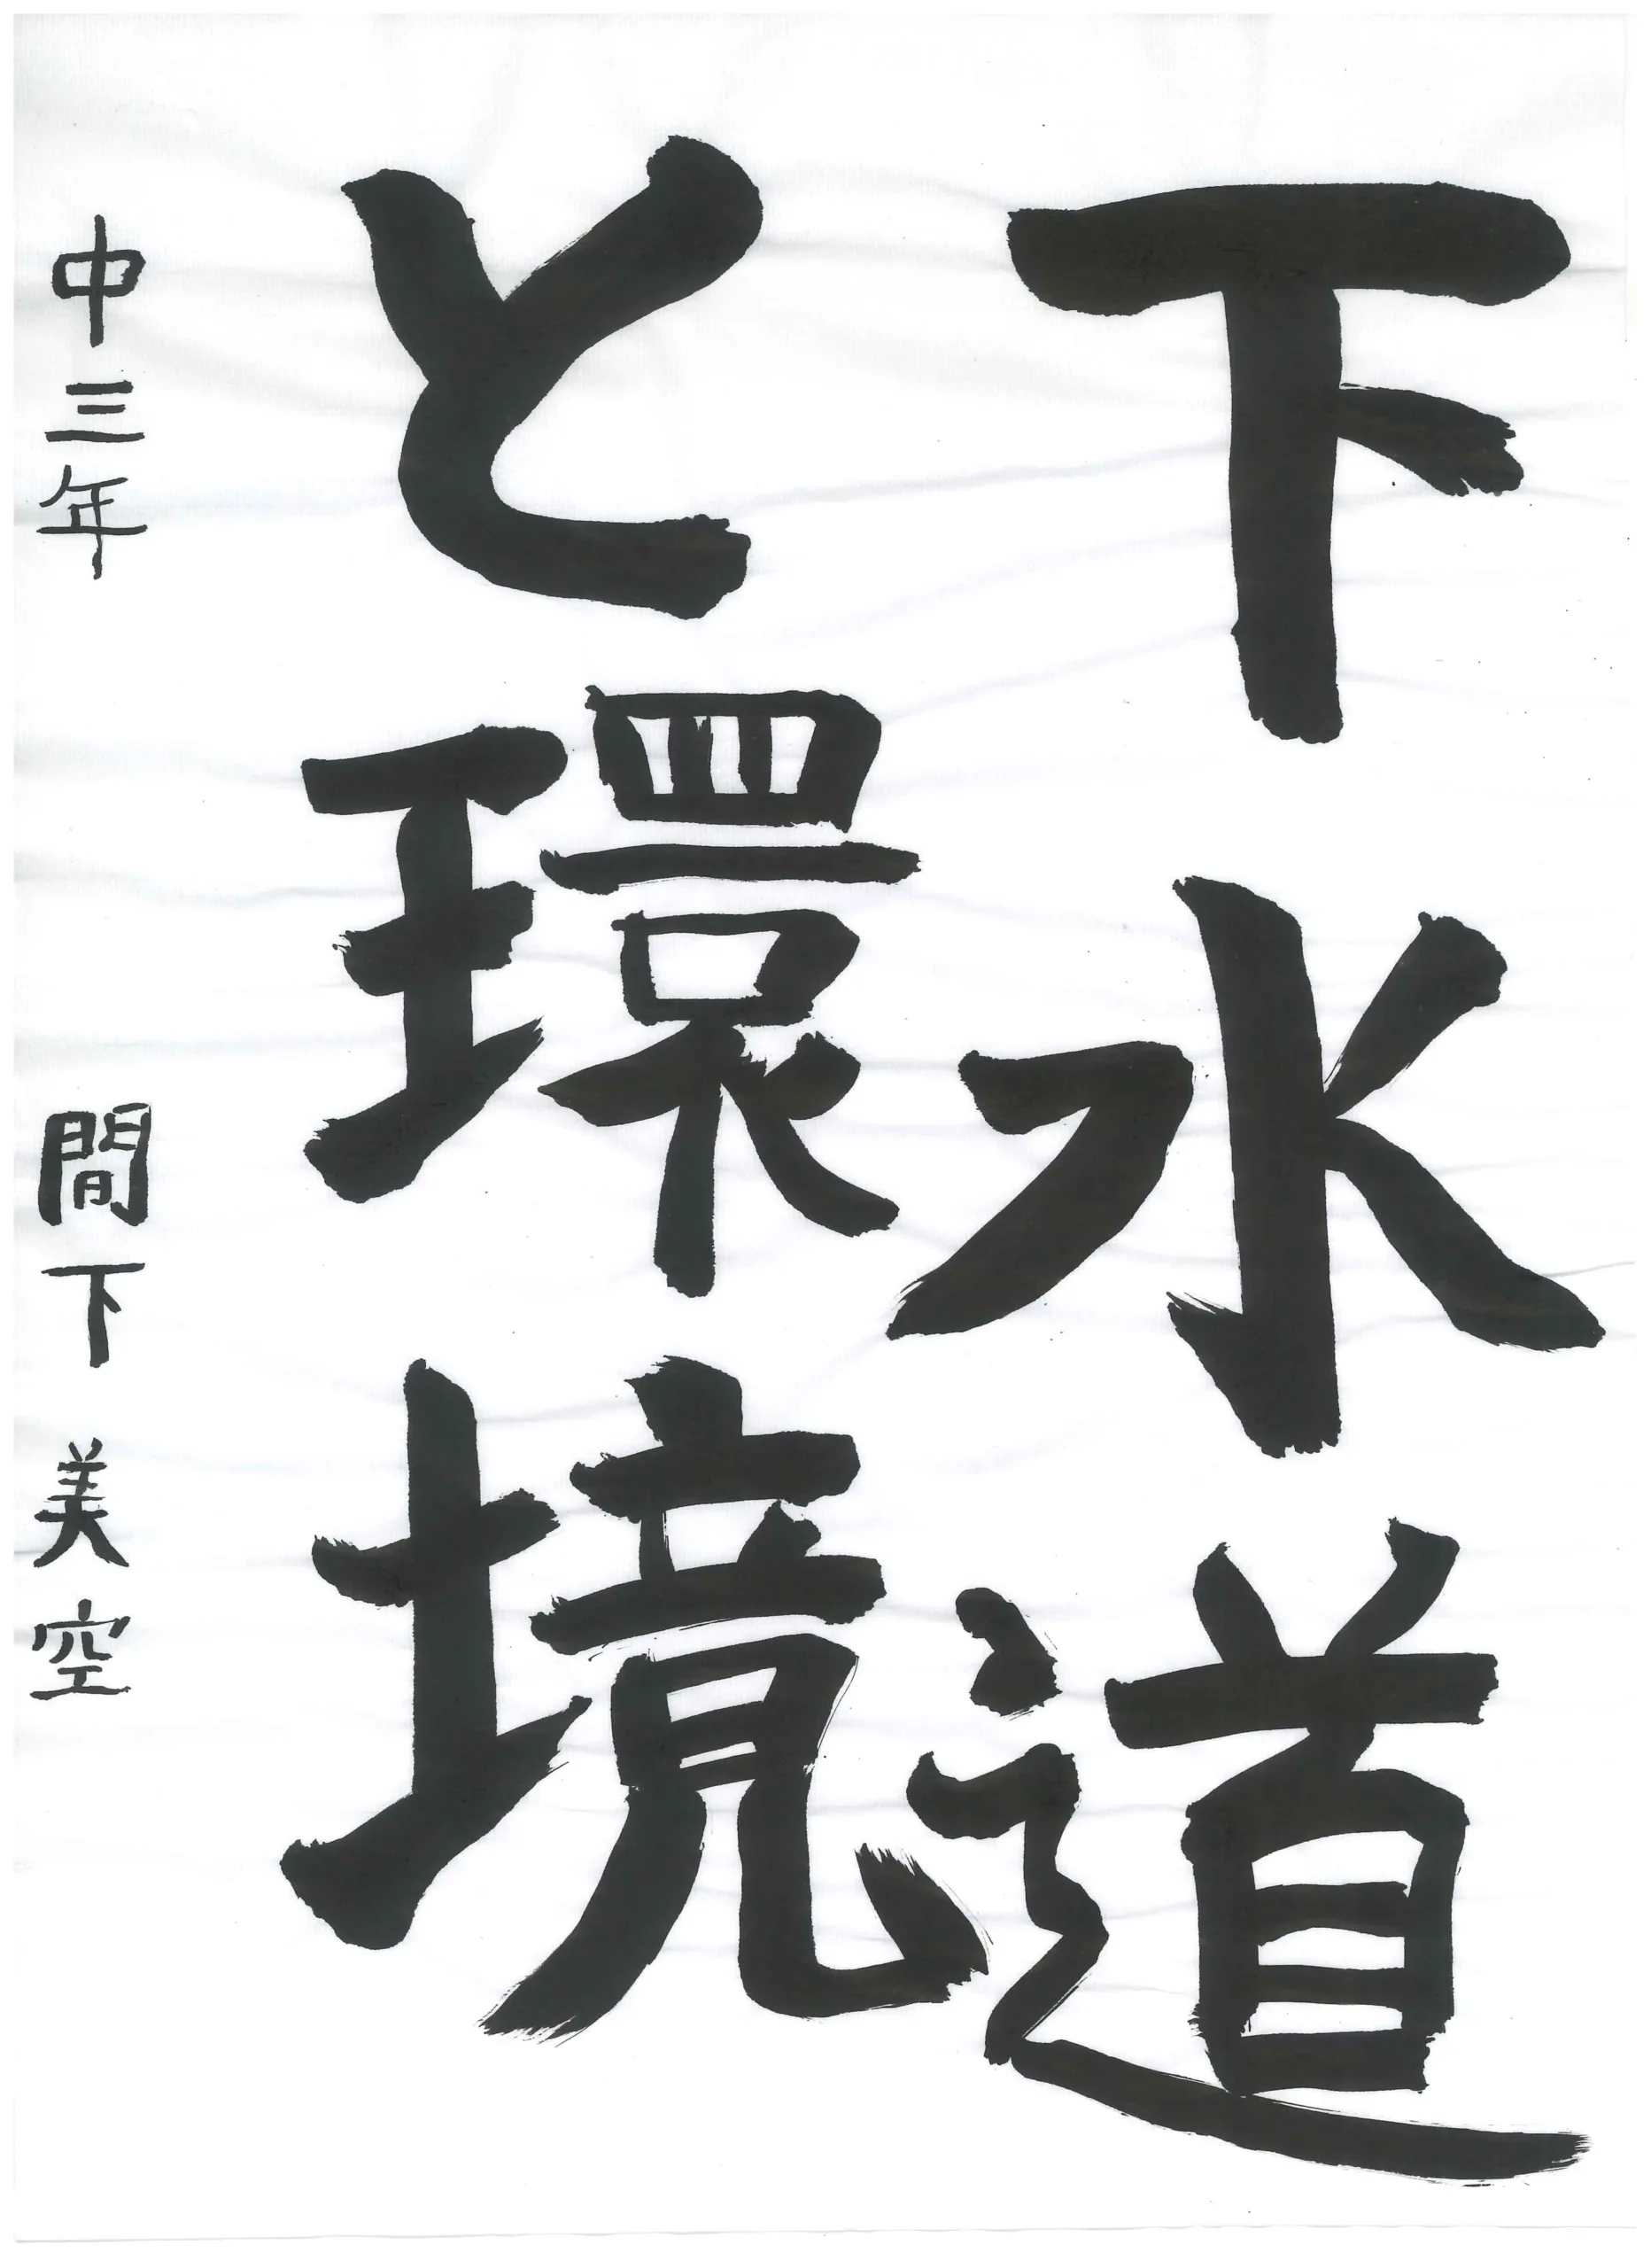 下水道
と環境
中三年 間下美空